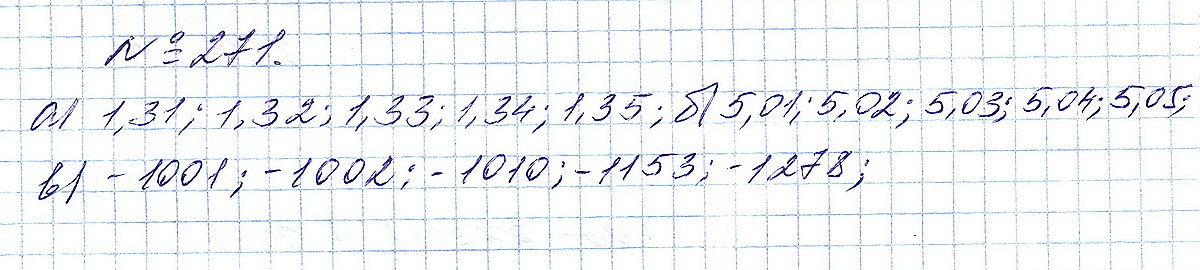 № 271.
а) 1,31; 1,32; 1,33; 1,34; 1,35; б) 5,01; 5,02; 5,03; 5,04; 5,05;
в) -1001; -1002; -1010; -1153; -1278;